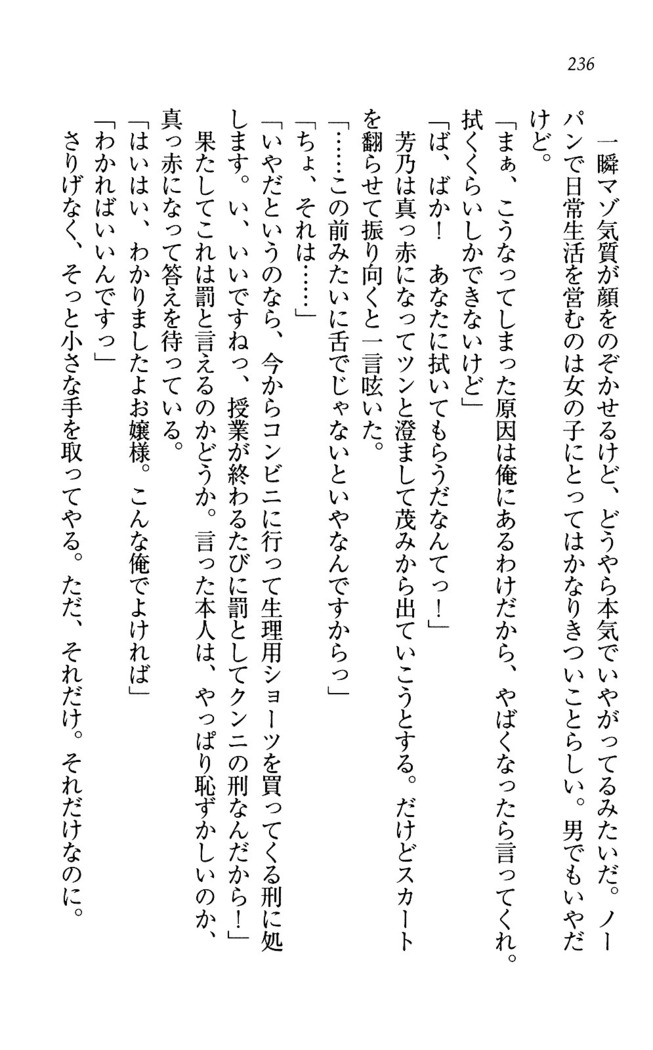 236
一瞬マゾ気質が顔をのぞかせるけど、どうやら本気でいやがってるみたいだ。ノー
パンで日常生活を営むのは女の子にとってはかなりきついことらしい。男でもいやだ
けど。
「まぁ、こうなってしまった原因は俺にあるわけだから、やばくなったら言ってくれ。
拭くくらいしかできないけど」
「ば、ばか！　あなたに拭いてもらうだなんてっ！」
芳乃は真っ赤になってツンと澄まして茂みから出ていこうとする。だけどスカート
を翻らせて振り向くと一言呟いた。
「……この前みたいに舌でじゃないといやなんですからっ」
「ちょ、それは……」
「いやだというのなら、今からコンビニに行って生理用ショーツを買ってくる刑に処
します。い、いいですねっ、授業が終わるたびに罰としてクンニの刑なんだから！」
果たしてこれは罰と言えるのかどうか。言った本人は、やっぱり恥ずかしいのか、
真っ赤になって答えを待っている。
「はいはい、わかりましたよお嬢様。こんな俺でよければ」
「わかればいいんですっ」
さりげなく、そっと小さな手を取ってやる。ただ、それだけ。それだけなのに。